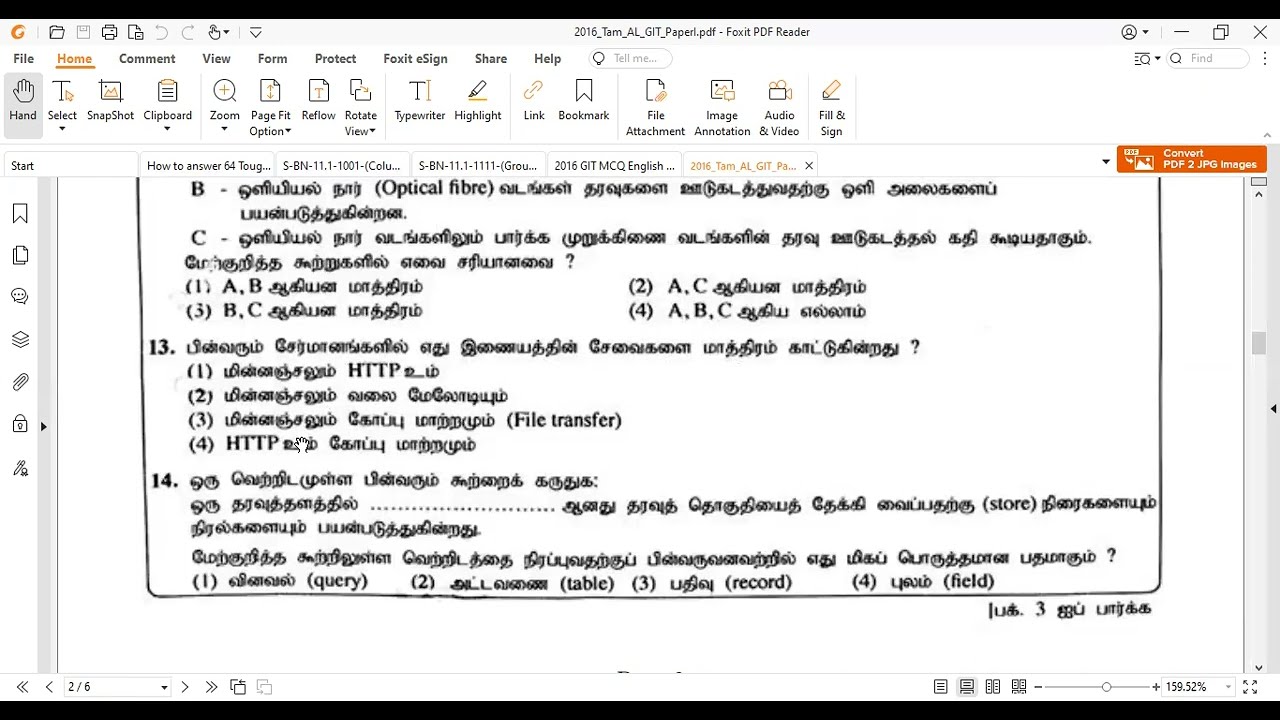 2016_Tam_AL_GIT_PaperI.pdf - Foxit PDF Reader
File Home Comment View Form Protect Foxit eSign Share Help Tell me... Find
Hand Select SnapShot Clipboard Zoom Page Fit Option Reflow Rotate View Typewriter Highlight Link Bookmark File Attachment Image Annotation Audio & Video Fill & Sign
Start How to answer 64 Toug... S-BN-11.1-1001-(Colu... S-BN-11.1-1111-(Grou... 2016 GIT MCQ English ... 2016_Tam_AL_GIT_Pa... Convert PDF 2 JPG Images
B - ஒளியியல் நார் (Optical fibre) வடங்கள் தரவுகளை ஊடுகடத்துவதற்கு ஒளி அலைகளைப்
பயன்படுத்துகின்றன.
C - ஒளியியல் நார் வடங்களிலும் பார்க்க முறுக்கிணை வடங்களின் தரவு ஊடுகடத்தல் கதி கூடியதாகும்.
மேற்குறித்த கூற்றுகளில் எவை சரியானவை ?
(1) A, B ஆகியன மாத்திரம் (2) A, C ஆகியன மாத்திரம்
(3) B, C ஆகியன மாத்திரம் (4) A, B, C ஆகிய எல்லாம்
13. பின்வரும் சேர்மானங்களில் எது இணையத்தின் சேவைகளை மாத்திரம் காட்டுகின்றது ?
(1) மின்னஞ்சலும் HTTP உம்
(2) மின்னஞ்சலும் வலை மேலோடியும்
(3) மின்னஞ்சலும் கோப்பு மாற்றமும் (File transfer)
(4) HTTP உம் கோப்பு மாற்றமும்
14. ஒரு வெற்றிடமுள்ள பின்வரும் கூற்றைக் கருதுக:
ஒரு தரவுத்தளத்தில் ............................ ஆனது தரவுத் தொகுதியைத் தேக்கி வைப்பதற்கு (store) நிரைகளையும்
நிரல்களையும் பயன்படுத்துகின்றது.
மேற்குறித்த கூற்றிலுள்ள வெற்றிடத்தை நிரப்புவதற்குப் பின்வருவனவற்றில் எது மிகப் பொருத்தமான பதமாகும் ?
(1) வினவல் (query) (2) அட்டவணை (table) (3) பதிவு (record) (4) புலம் (field)
|பக். 3 ஐப் பார்க்க
2 / 6 159.52%